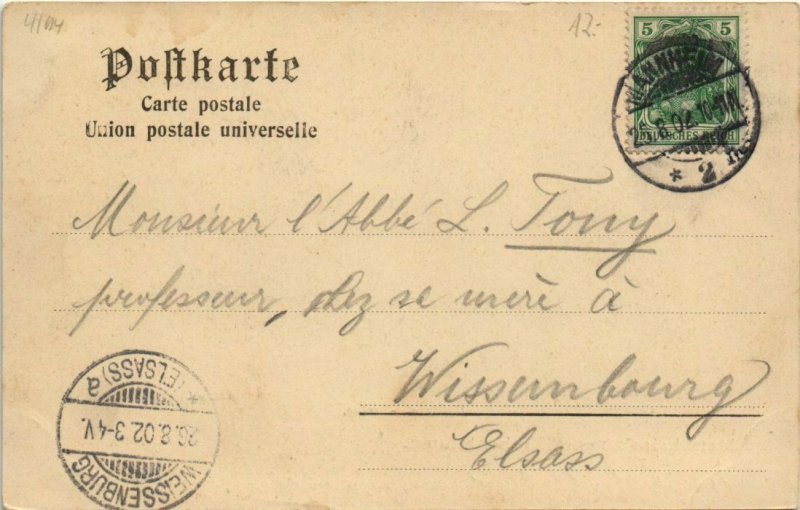 4/014
12.-
Postkarte
Carte postale
Union postale universelle
5 5
DEUTSCHES REICH
MANNHEIM
.8.02.10-11
* 2
Monsieur l'Abbé L. Tony
professeur, chez sa mère à
Wissembourg
Elsass
WEISSENBURG
26.8.02.3-4V.
* (ELSASS) a